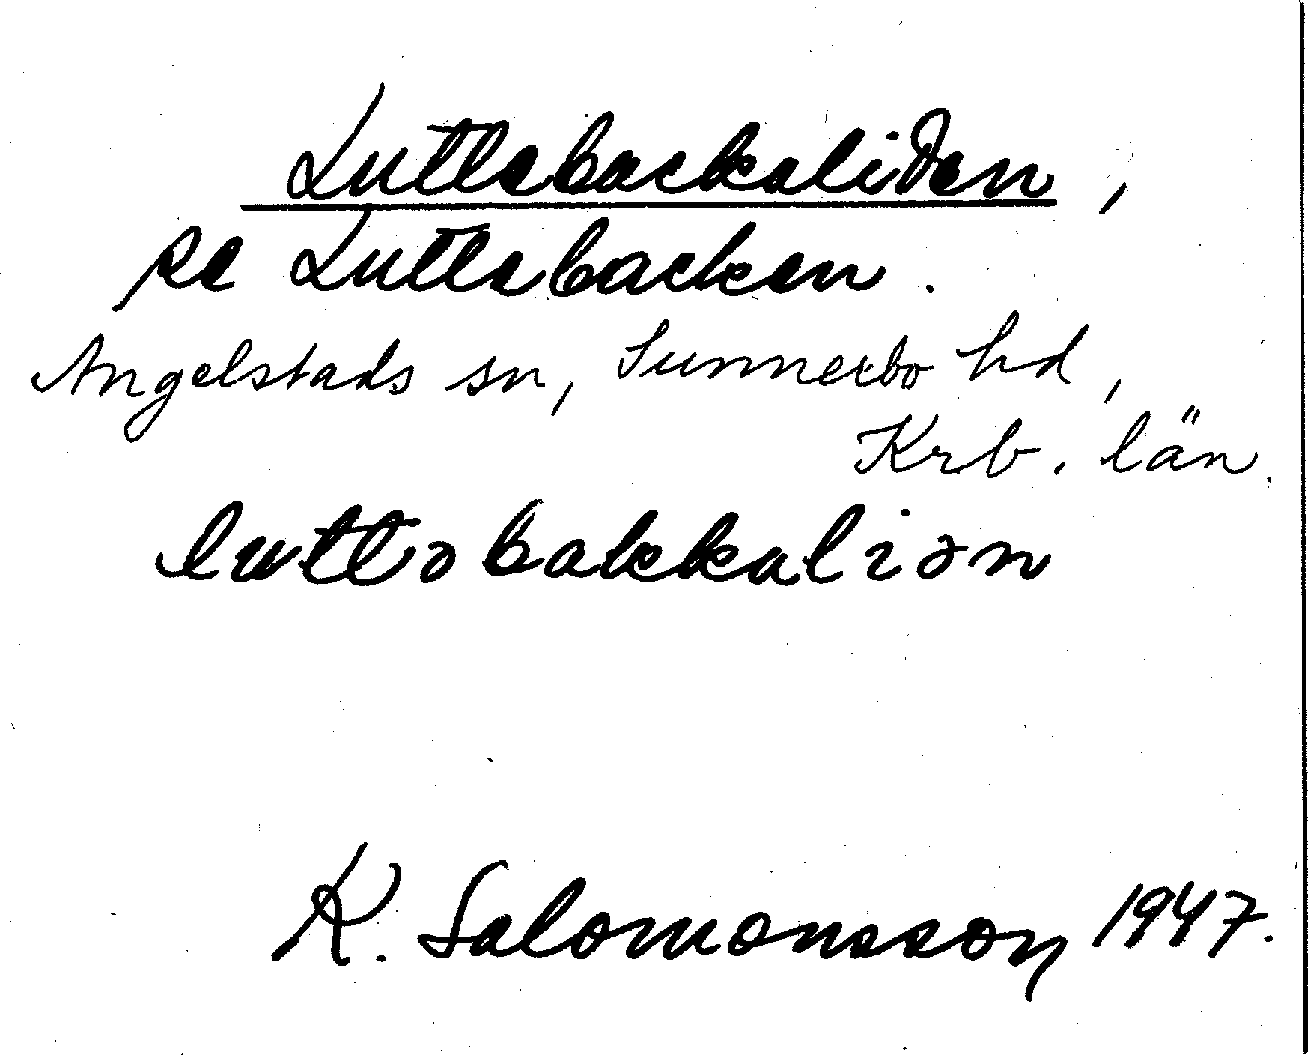 Luttabackaliden,
se Luttabacken.
Angelstads sn, Sunnerbo hd,
Krb. län.
luttəbakkaliən
K. Salomonsson 1947.